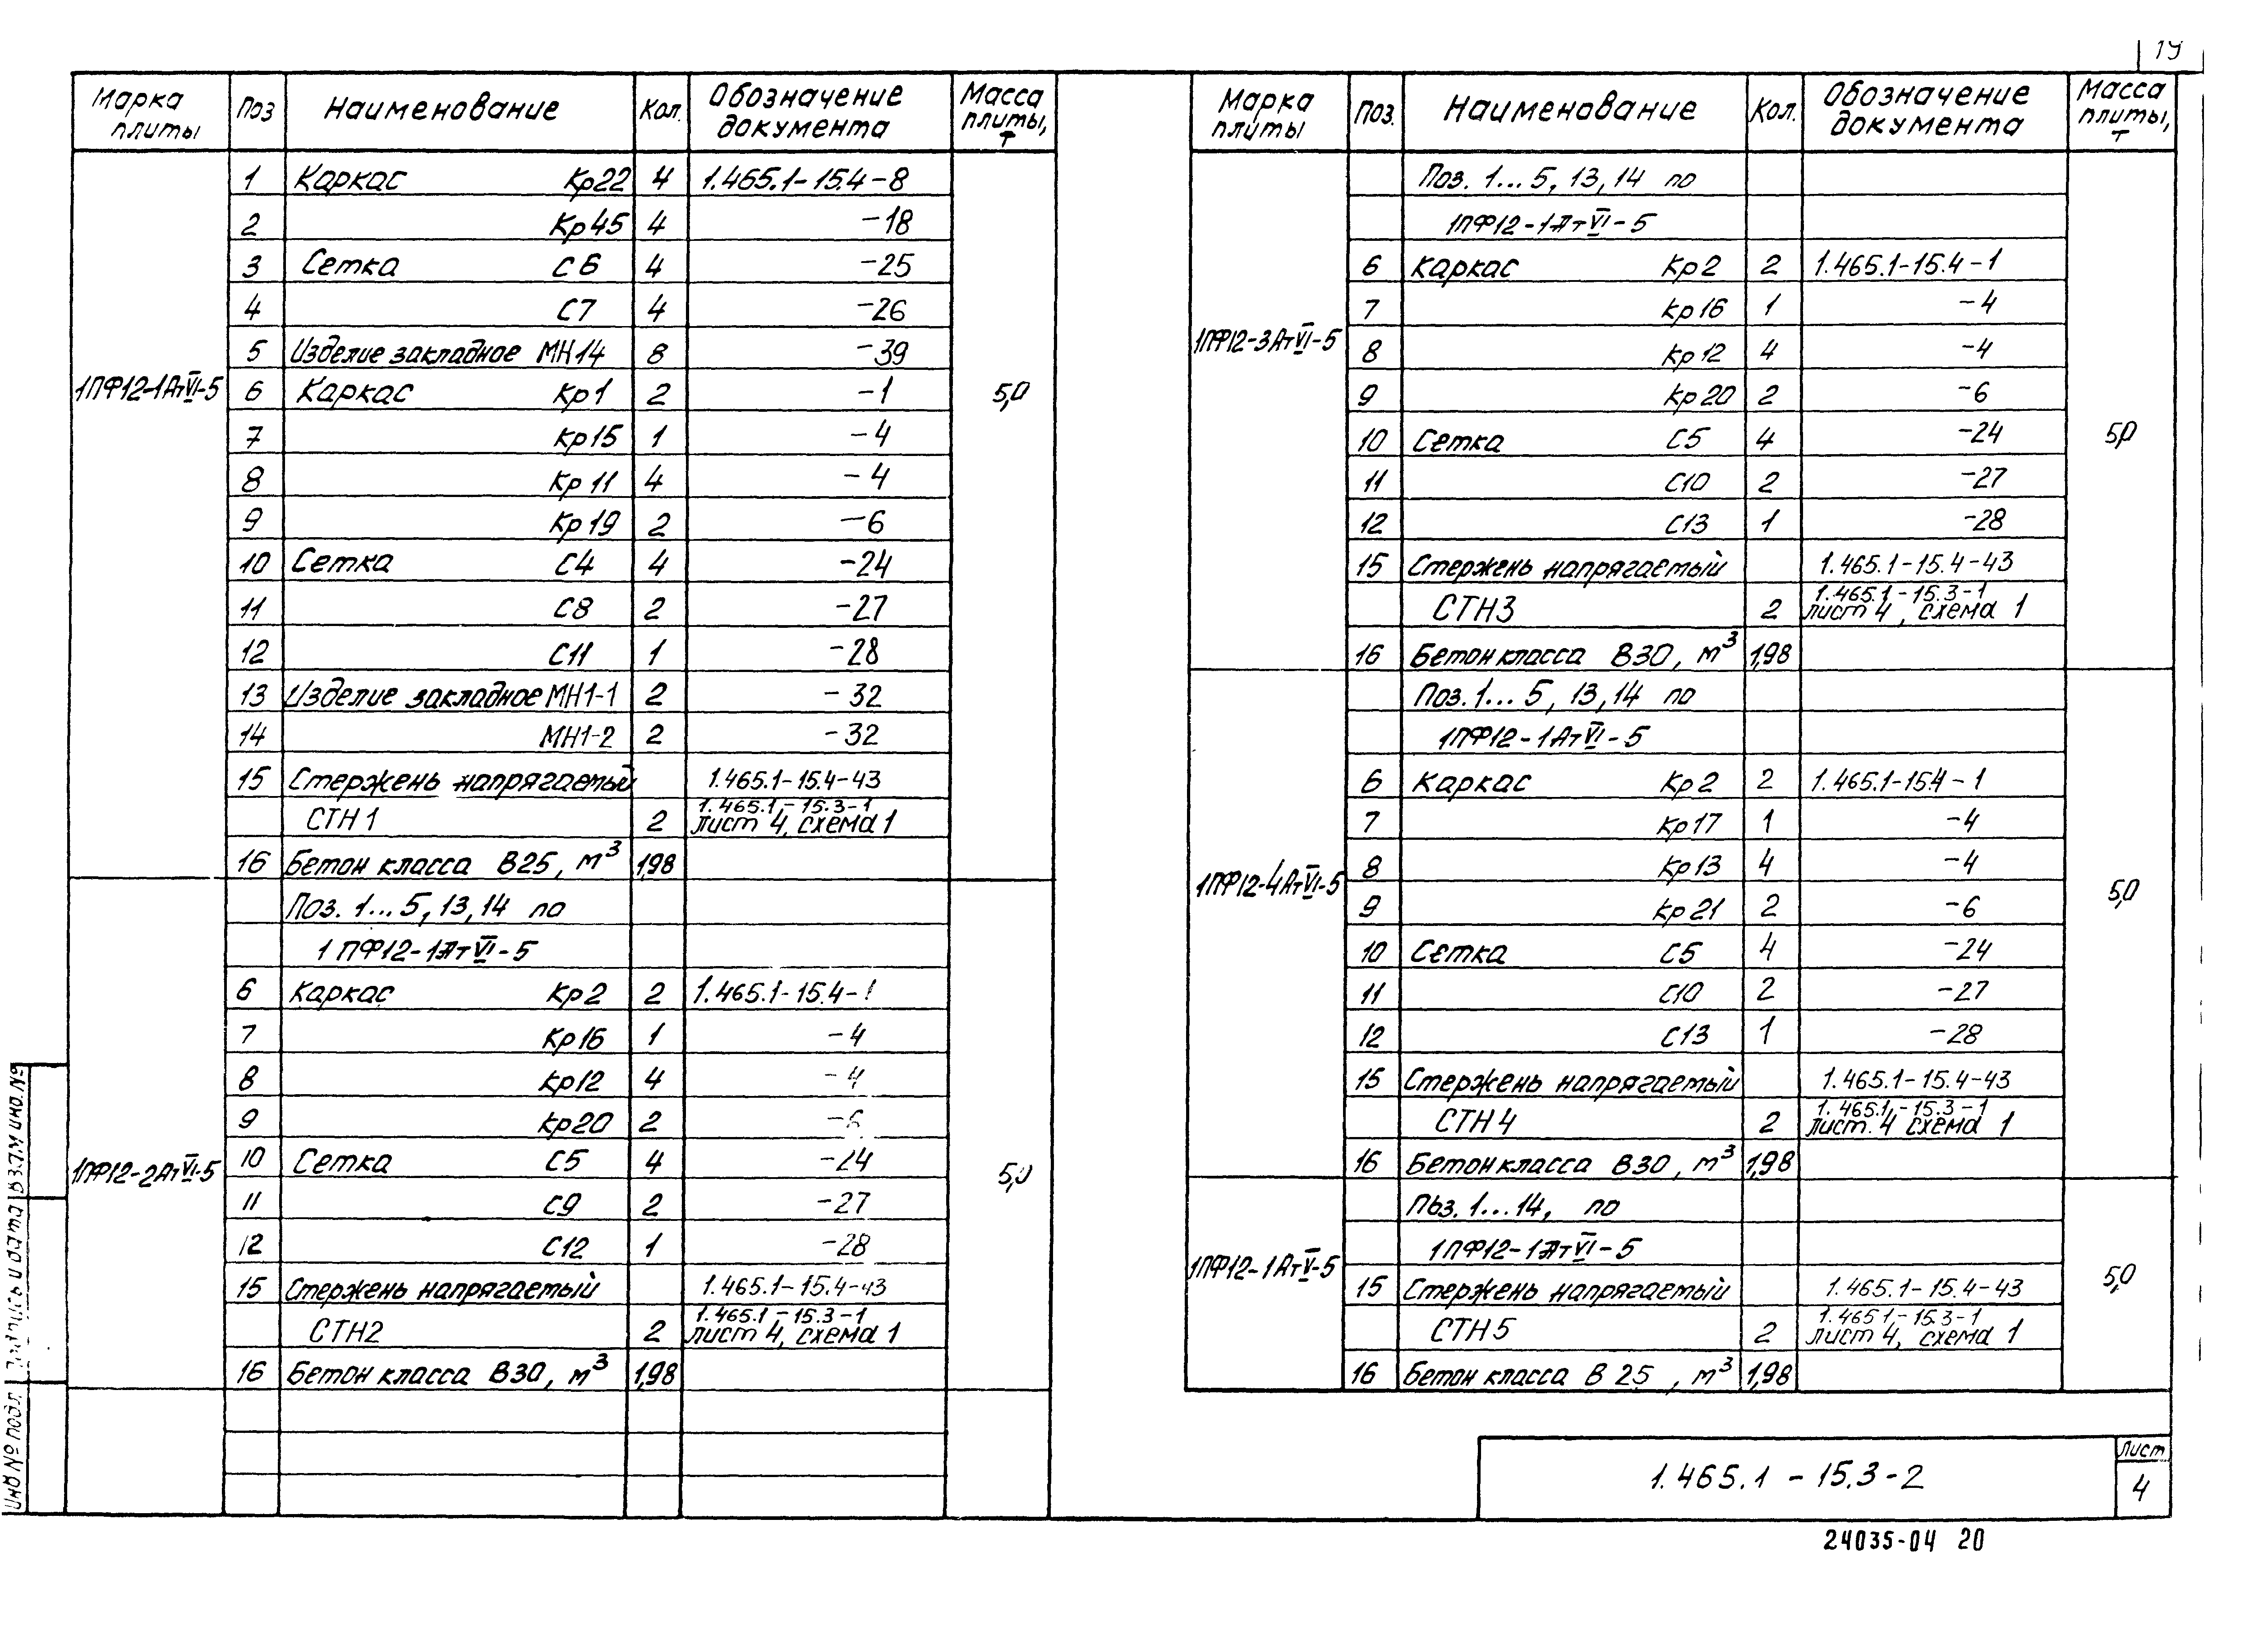 19
Марка плиты Поз Наименование Кол. Обозначение документа Масса плиты, т
1ПФ12-1АтVI-5 5,0
1 Каркас Кр22 4 1.465.1-15.4-8
2 Кр45 4 -18
3 Сетка С6 4 -25
4 С7 4 -26
5 Изделие закладное МН14 8 -39
6 Каркас Кр1 2 -1
7 Кр15 1 -4
8 Кр11 4 -4
9 Кр19 2 -6
10 Сетка С4 4 -24
11 С8 2 -27
12 С11 1 -28
13 Изделие закладное МН1-1 2 -32
14 МН1-2 2 -32
15 Стержень напрягаемый 1.465.1-15.4-43
СТН1 2 1.465.1-15.3-1 лист 4, схема 1
16 Бетон класса В25, м³ 1,98
1ПФ12-2АтVI-5 5,0
Поз. 1...5, 13, 14 по
1ПФ12-1АтVI-5
6 Каркас Кр2 2 1.465.1-15.4-1
7 Кр16 1 -4
8 Кр12 4 -4
9 Кр20 2 -6
10 Сетка С5 4 -24
11 С9 2 -27
12 С12 1 -28
15 Стержень напрягаемый 1.465.1-15.4-43
СТН2 2 1.465.1-15.3-1 лист 4, схема 1
16 Бетон класса В30, м³ 1,98
Марка плиты Поз. Наименование Кол. Обозначение документа Масса плиты, т
1ПФ12-3АтVI-5 5,0
Поз. 1...5, 13, 14 по
1ПФ12-1АтVI-5
6 Каркас Кр2 2 1.465.1-15.4-1
7 Кр16 1 -4
8 Кр12 4 -4
9 Кр20 2 -6
10 Сетка С5 4 -24
11 С10 2 -27
12 С13 1 -28
15 Стержень напрягаемый 1.465.1-15.4-43
СТН3 2 1.465.1-15.3-1 лист 4, схема 1
16 Бетон класса В30, м³ 1,98
1ПФ12-4АтVI-5 5,0
Поз. 1...5, 13, 14 по
1ПФ12-1АтVI-5
6 Каркас Кр2 2 1.465.1-15.4-1
7 Кр17 1 -4
8 Кр13 4 -4
9 Кр21 2 -6
10 Сетка С5 4 -24
11 С10 2 -27
12 С13 1 -28
15 Стержень напрягаемый 1.465.1-15.4-43
СТН4 2 1.465.1-15.3-1 лист 4 схема 1
16 Бетон класса В30, м³ 1,98
1ПФ12-1АтV-5 5,0
Поз. 1...14, по
1ПФ12-1АтVI-5
15 Стержень напрягаемый 1.465.1-15.4-43
СТН5 2 1.465.1-15.3-1 лист 4, схема 1
16 Бетон класса В25, м³ 1,98
1.465.1-15.3-2
Лист
4
24035-04 20
Инв № подл. Подпись и дата Взам инв. №